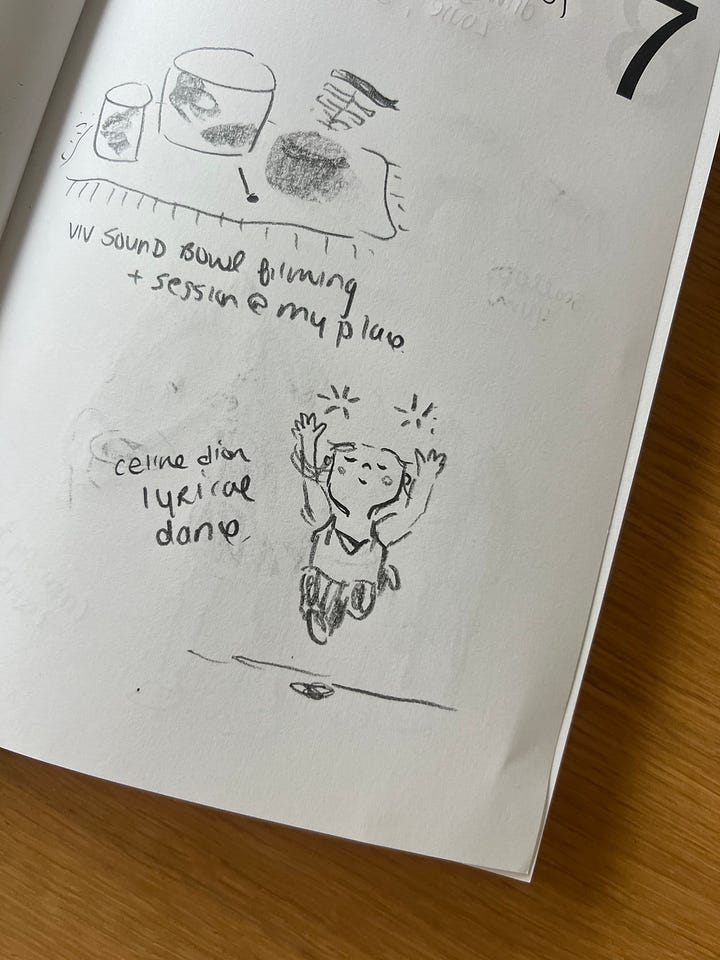 7
VIV SOUND BOWL filming
+ session @ my place
celine dion
lyrical
dance